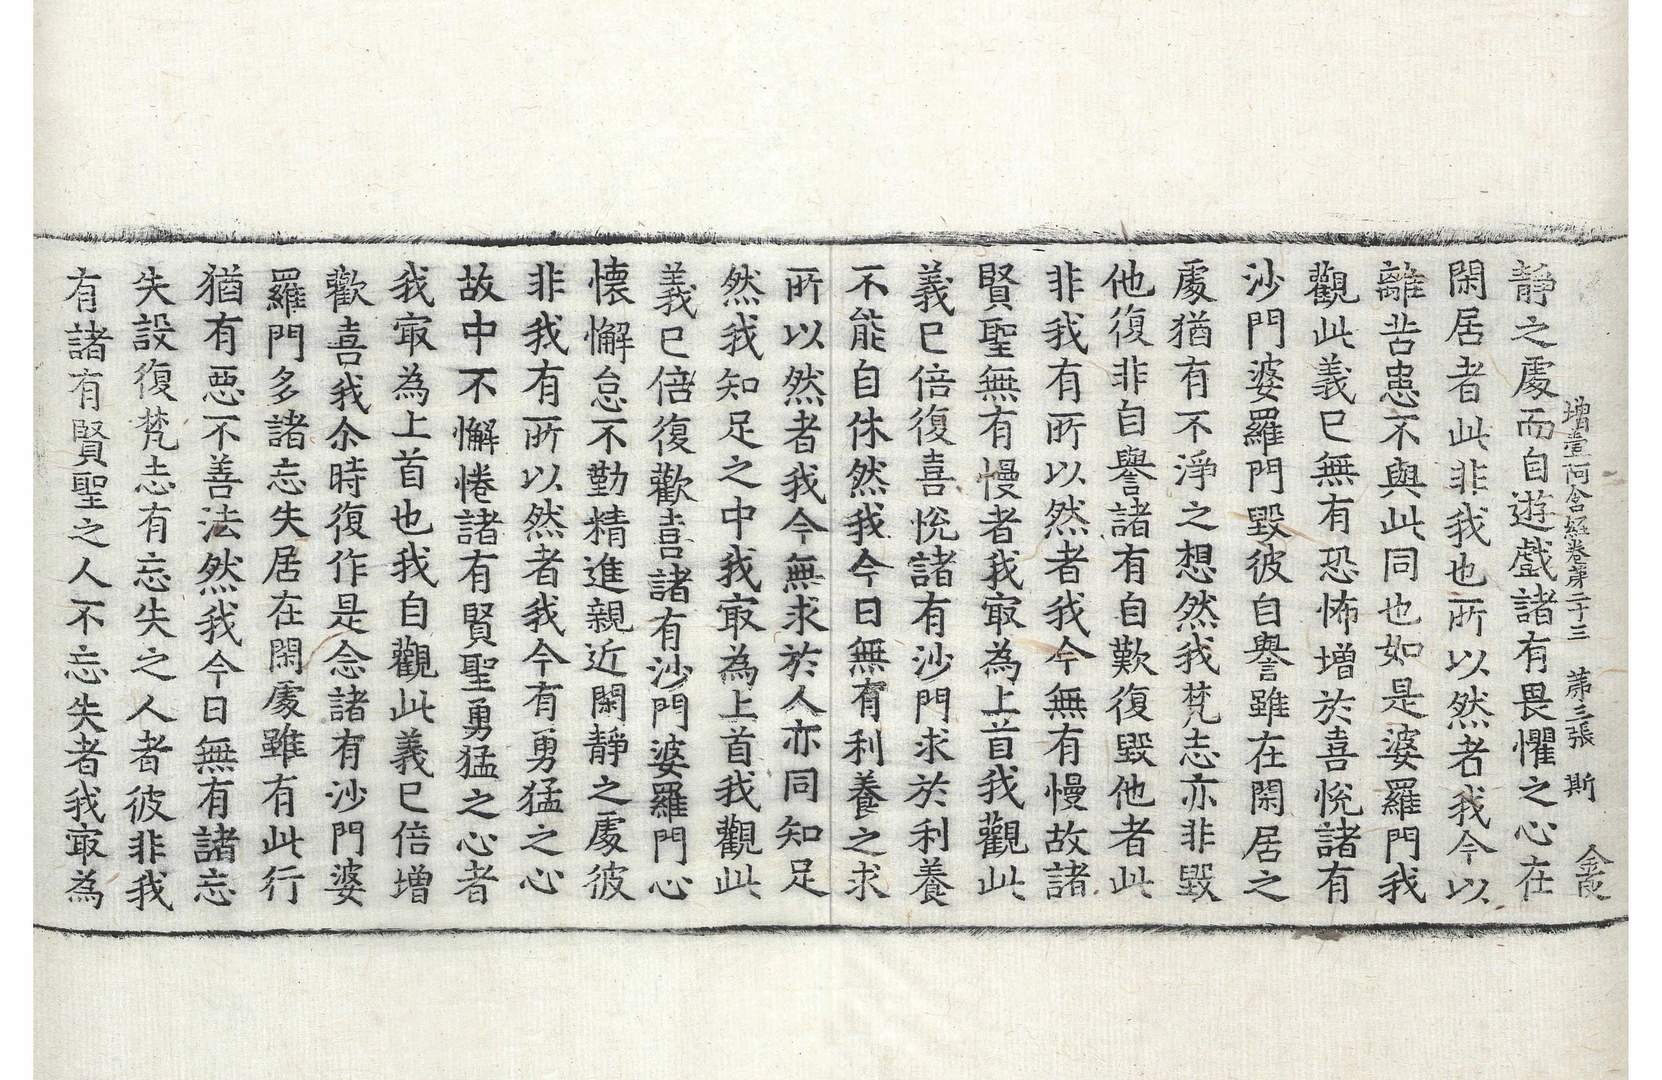 增壹阿含經卷第二十三 第三張 斯
靜之處而自遊戲諸有畏懼之心在
閑居者此非我也所以然者我今以
離苦患不與此同也如是婆羅門我
觀此義已無有恐怖增於喜悅諸有
沙門婆羅門毀彼自譽雖在閑居之
處猶有不淨之想然我梵志亦非毀
他復非自譽諸有自歎復毀他者此
非我有所以然者我今無有慢故諸
賢聖無有慢者我寂為上首我觀此
義已倍復喜悅諸有沙門求於利養
不能自休然我今日無有利養之求
所以然者我今無求於人亦同知足
然我知足之中我寂為上首我觀此
義已倍復歡喜諸有沙門婆羅門心
懷懈怠不勤精進親近閑靜之處彼
非我有所以然者我今有勇猛之心
故中不懈惓諸有賢聖勇猛之心者
我寂為上首也我自觀此義已倍增
歡喜我尒時復作是念諸有沙門婆
羅門多諸忘失居在閑處雖有此行
猶有惡不善法然我今日無有諸忘
失設復梵志有忘失之人者彼非我
有諸有賢聖之人不忘失者我寂為